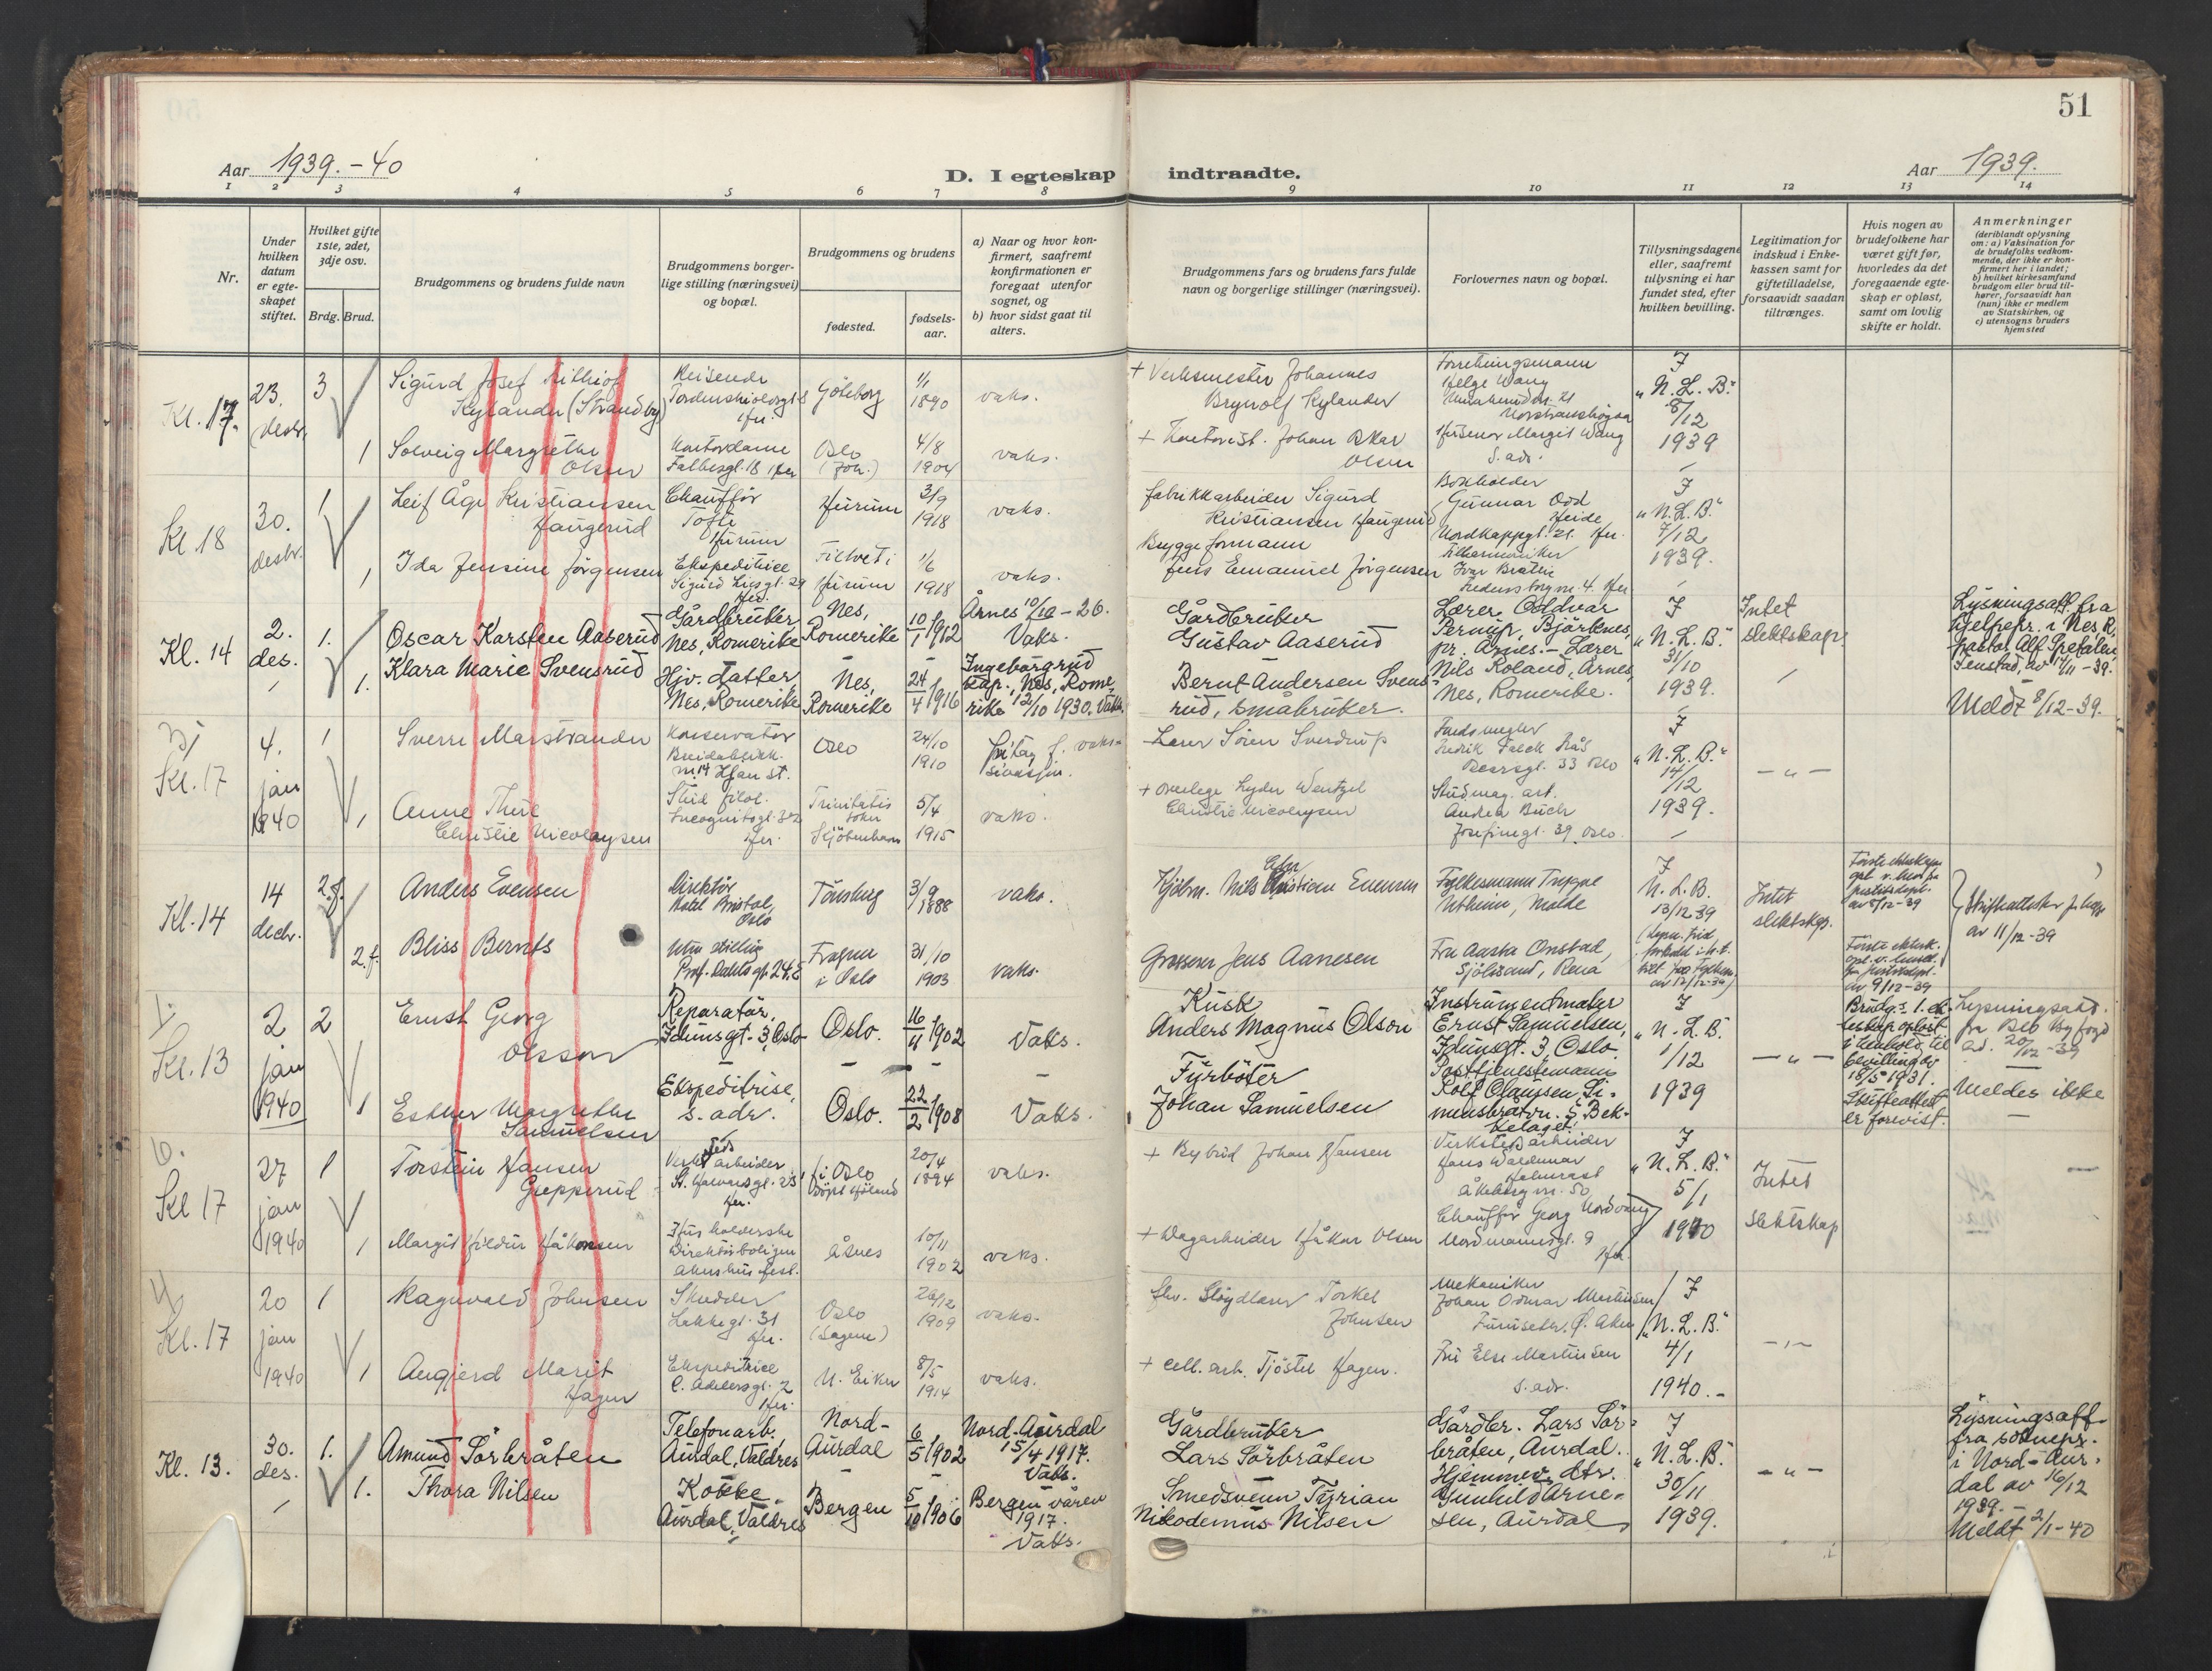 51
Aar 1939.-40
D. I egteskap indtraadte.
Aar 1939.
1 2 3 4 5 6 7 8 9 10 11 12 13 14
Nr.
Under hvilken datum er egteskapet stiftet.
Hvilket gifte 1ste, 2det, 3dje osv.
Brdg. Brud.
Brudgommens og brudens fulde navn
Brudgommens borgerlige stilling (næringsvei) og bopæl.
Brudgommens og brudens
fødested.
fødselsaar.
a) Naar og hvor konfirmert, saafremt konfirmationen er foregaat utenfor sognet, og
b) hvor sidst gaat til alters.
Brudgommens fars og brudens fars fulde navn og borgerlige stillinger (næringsvei).
Forlovernes navn og bopæl.
Tillysningsdagene eller, saafremt tillysning ei har fundet sted, efter hvilken bevilling.
Legitimation for indskud i Enkekassen samt for giftetilladelse, forsaavidt saadan tiltrænges.
Hvis nogen av brudefolkene har været gift før, hvorledes da det foregaaende egteskap er opløst, samt om lovlig skifte er holdt.
Anmerkninger
(deriblandt oplysning om: a) Vaksination for de brudefolks vedkommende, der ikke er konfirmert her i landet;
b) hvilket kirkesamfund brudgom eller brud tilhører, forsaavidt han (hun) ikke er medlem av Statskirken, og
c) utensogns bruders hjemsted
Kl. 17.
23. desbr.
3
Sigurd Josef
Kylander (Strandby)
Reisende
Göteborg
1/1 1890
vaks.
+ Verksmester Johannes
Brynolf Kylander
Forretningsmann
Helge Wang
I
"N. L. B."
8/12
1939
1
Solveig Margrethe
Olsen
Kontordame
Oslo
4/8 1904
vaks.
+ Kontorist. Johan Oskar
Olsen
Margit Wang
s. adr.
Kl 18
30. desbr.
1
Leif Åge Kristiansen
Haugerud
Chauffør
Tofte
Hurum
Hurum
3/9 1918
vaks.
Fabrikkarbeider Sigurd
Kristiansen Haugerud
Bokholder
Gunnar Odd
Heide
Nordkappgt. 21.
I
"N. L. B."
7/12
1939.
1
Ida Jensine Jörgensen
Ekspeditrice
Hurum
1/6 1918
vaks.
Bryggeformann
Jens Emanuel Jörgensen
Ivar Bråthe
Kl. 14
2. des.
1.
Oscar Karsten Aaserud
Gårdbruker,
Nes, Romerike
Nes,
Romerike
10/1 1912
Årnes 10/10 - 26.
Vaks.
Gårdbruker
Gustav Aaserud
Lærer Oddvar
Pernup, Bjärknes,
pr. Årnes. - Lærer
Nils Roland, Årnes,
Nes, Romerike.
I
"N. L. B."
31/10
1939.
Intet
slektskap.
Lysningsatt. fra
hjelpepr. i Nes, R,
pastor Alf Spetalen,
Fenstad, av 17/11 - 39.
Meldt 8/12-39.
1.
Klara Marie Svensrud
Hjv. datter
Nes, Romerike
Nes,
Romerike
24/4 1916
Ingeborgrud
kap., Nes, Romerike
12/10 1930. Vaks.
Bernt Andersen Svensrud,
småbruker.
Kl. 17
4. jan 1940
1
Sverre Marstrander
Konservator
Oslo
24/10 1910
fritag. f. vaksinasjon.
Lærer Sören Sverdrup
Oslo
I
"N. L. B."
14/12
1939.
- " -
1
Anne
Christie Nicolaysen
Stud. filol.
Trinitatis
sokn
Kjöbenhavn
5/4 1915
vaks.
+ Overlege Lyder Wentzel
Christie Nicolaysen
Stud. mag. art.
Andrea Buch
Josefinegt. 39, Oslo.
Kl. 14
14 decbr.
2. f.
Anders Evensen
Direktör
Hotel Bristol,
Oslo
Tönsberg
3/9 1888
vaks.
Kjöbm. Nils Evensen
Fylkesmann Trygve
Utheim, Molde
I
N. L. B.
13/12 39
Intet
slektskap.
Skifteattester
av 11/12-39
2. f.
Bliss Bernts
Uten stilling
Prof. Dahls gt. 24,
Frogner
i Oslo
31/10 1903
vaks.
Grosserer Jens Aanesen
Fru Aasta Onstad,
Sjölisand, Rena
Kl. 13
2 jan 1940
2
Ernst Georg
Olsson
Reparatør,
Idunsgt. 3, Oslo
Oslo.
16/11 1902
Vaks.
Kusk
Anders Magnus Olson
Instrumentmaker
Ernst Samuelsen,
Idunsgt. 3, Oslo.
Posttjenestemann
Rolf Olaussen, Simensbråtvn. 5, Bekkelaget.
I
"N. L. B."
1/12
1939
- " -
Brudg.s 1. ekteskap opløst
i henhold til
bevilling av
18/5 1931.
Skifteattest
er forevist.
Lysningsatt.
fra Oslo Byfogd
ad. 20/12-39
Meldes ikke
1
Esther Margrethe
Samuelsen
Ekspeditrise,
s. adr.
Oslo.
22/2 1908
Vaks.
Fyrböter
Johan Samuelsen
6.
Kl 17
27 jan 1940
1
Torstein Hansen
Grepperud
Verkstedsarbeider
i Oslo
20/4 1894
vaks.
+ Bybud Johan Hansen
Verkstedsarbeider
Hans Waldemar
Åkebergvn. 50
Chauffør Georg Nordvang
Nordmannsgt. 9
I
"N. L. B."
5/1
1940
Intet
slektskap
1
Margit Hildur Håkonsen
Husholderske
Direktörboligen
Akershus fest.
Åsnes
10/11 1902
vaks.
+ Dagarbeider Håkon Olsen
4
Kl. 17
20 jan 1940
1
Ragnvald Johnsen
Skredder
Lakkegt. 31
Oslo
(Sagene)
26/12 1909
vaks.
Sløydlærer Torkel
Johnsen
Mekaniker
Johan Odmar Martinsen
I
"N. L. B."
4/1
1940.-
1
Angjerd Marit
Hagen
Ekspeditrice
C. Adelersgt. 2
N. Eiker
8/5 1914
vaks.
+ cell. arb. Tjöstel Hagen.
Fru Else Martinsen
s. adr.
Kl. 13.
30. des.
1.
Amund Sörbråten
Telefonarb.,
Aurdal, Valdres
Nord-
Aurdal
6/5 1902
Nord-Aurdal
15/4 1917.
Vaks.
Gårdbruker
Lars Sörbråten
Gårdbr. Lars Sörbråten, Aurdal.
Hjemmev. dtr.
Gunhild Arnesen, Aurdal
I
"N. L. B."
30/11
1939.
- " -
Lysningsatt.
fra sognepr.
i Nord-Aurdal
av 16/12
1939. -
Meldt 2/1-40
1.
Thora Nilsen
Kokke,
Aurdal, Valdres
Bergen
5/10 1906
Bergen våren
1917.
Vaks.
Smedsvenn Tyrian
Nikodemus Nilsen